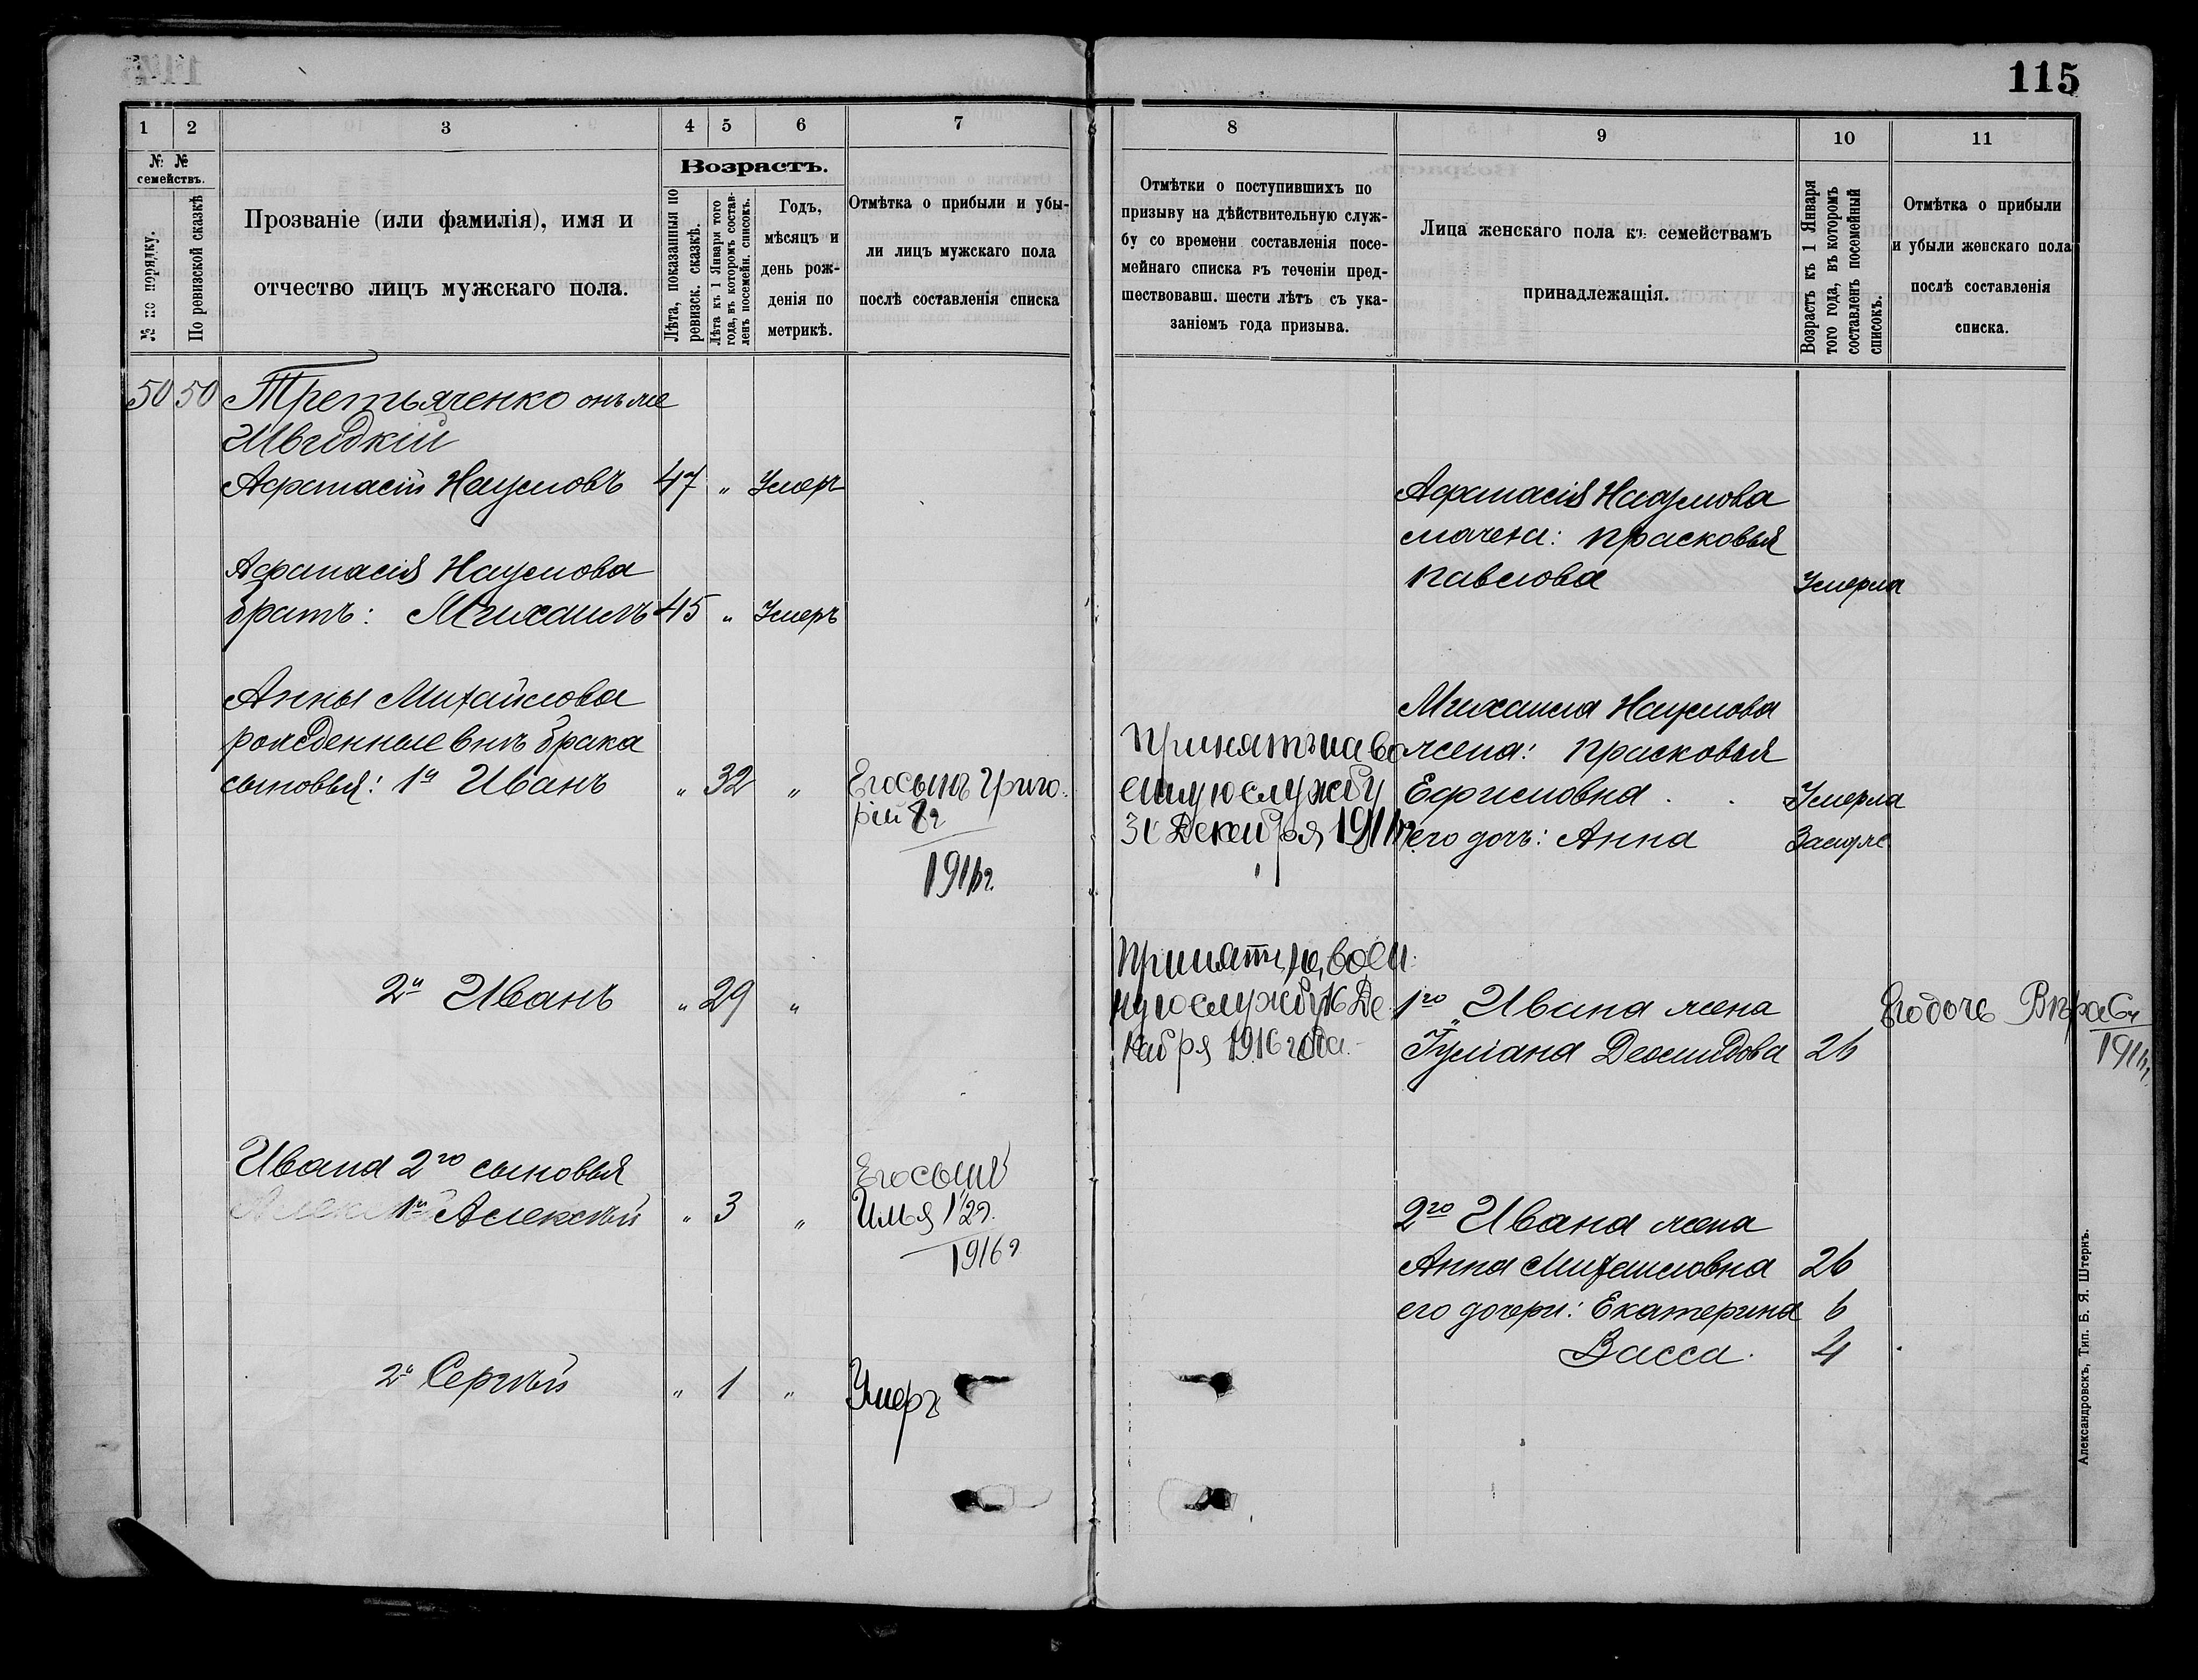 115
1 2 3 4 5 6 7
№ № семействъ.
№ по порядку.
По ревизской сказкѣ
Прозваніе (или фамилія), имя и
отчество лицъ мужскаго пола.
Возрастъ.
Лѣта, показанныя по
ревизск. сказкѣ.
Лѣта къ 1 Января того
года, въ которомъ состав-
ленъ посемейн. списокъ.
Годъ,
мѣсяцъ и
день рож-
денія по
метрикѣ.
Отмѣтка о прибыли и убы-
ли лицъ мужскаго пола
послѣ составленія списка
50 50 Третьяченко онъ же
Афанасій Наумовъ 47 " Умеръ
Афанасія Наумова
братъ: Михаилъ 45 " Умеръ
Анны Михайлова
рожденные внѣ брака
сыновья: 1й Иванъ " 32 " Его сынъ Григо-
рій 8г
1916г.
2й Иванъ " 29 "
Ивана 2го сыновья
Его сынъ
1й Алексѣй " 3 " Илья 1/2г.
1916г
2й Сергѣй " 1 " Умеръ
8 9 10 11
Отмѣтки о поступившихъ по
призыву на дѣйствительную служ-
бу со времени составленія посе-
мейнаго списка въ теченіи пред-
шествовавш. шести лѣтъ съ ука-
заніемъ года призыва.
Лица женскаго пола къ семействамъ
принадлежащія.
Возрастъ къ 1 Января
того года, въ которомъ
составленъ посемейный
списокъ.
Отмѣтка о прибыли
и убыли женскаго пола
послѣ составленія
списка.
Афанасія Наумова
мачеха: Прасковья
Павлова Умерла
Михаила Наумова
Принятъ на во- жена: Прасковья
енную службу Ефимовна Умерла
31 Декабря 1914г. его дочь: Анна Замуже
Принятъ на воен-
ную службу 16 Де- 1го Ивана жена Его дочь Вѣра 6г
кабря 1916 года. Іуліана Деомидова 26 1916г.
2го Ивана жена
Анна Михаиловна 26
его дочери: Екатерина 6
Васса. 4
Александровскъ, Тип. Б. Я. Штернъ.